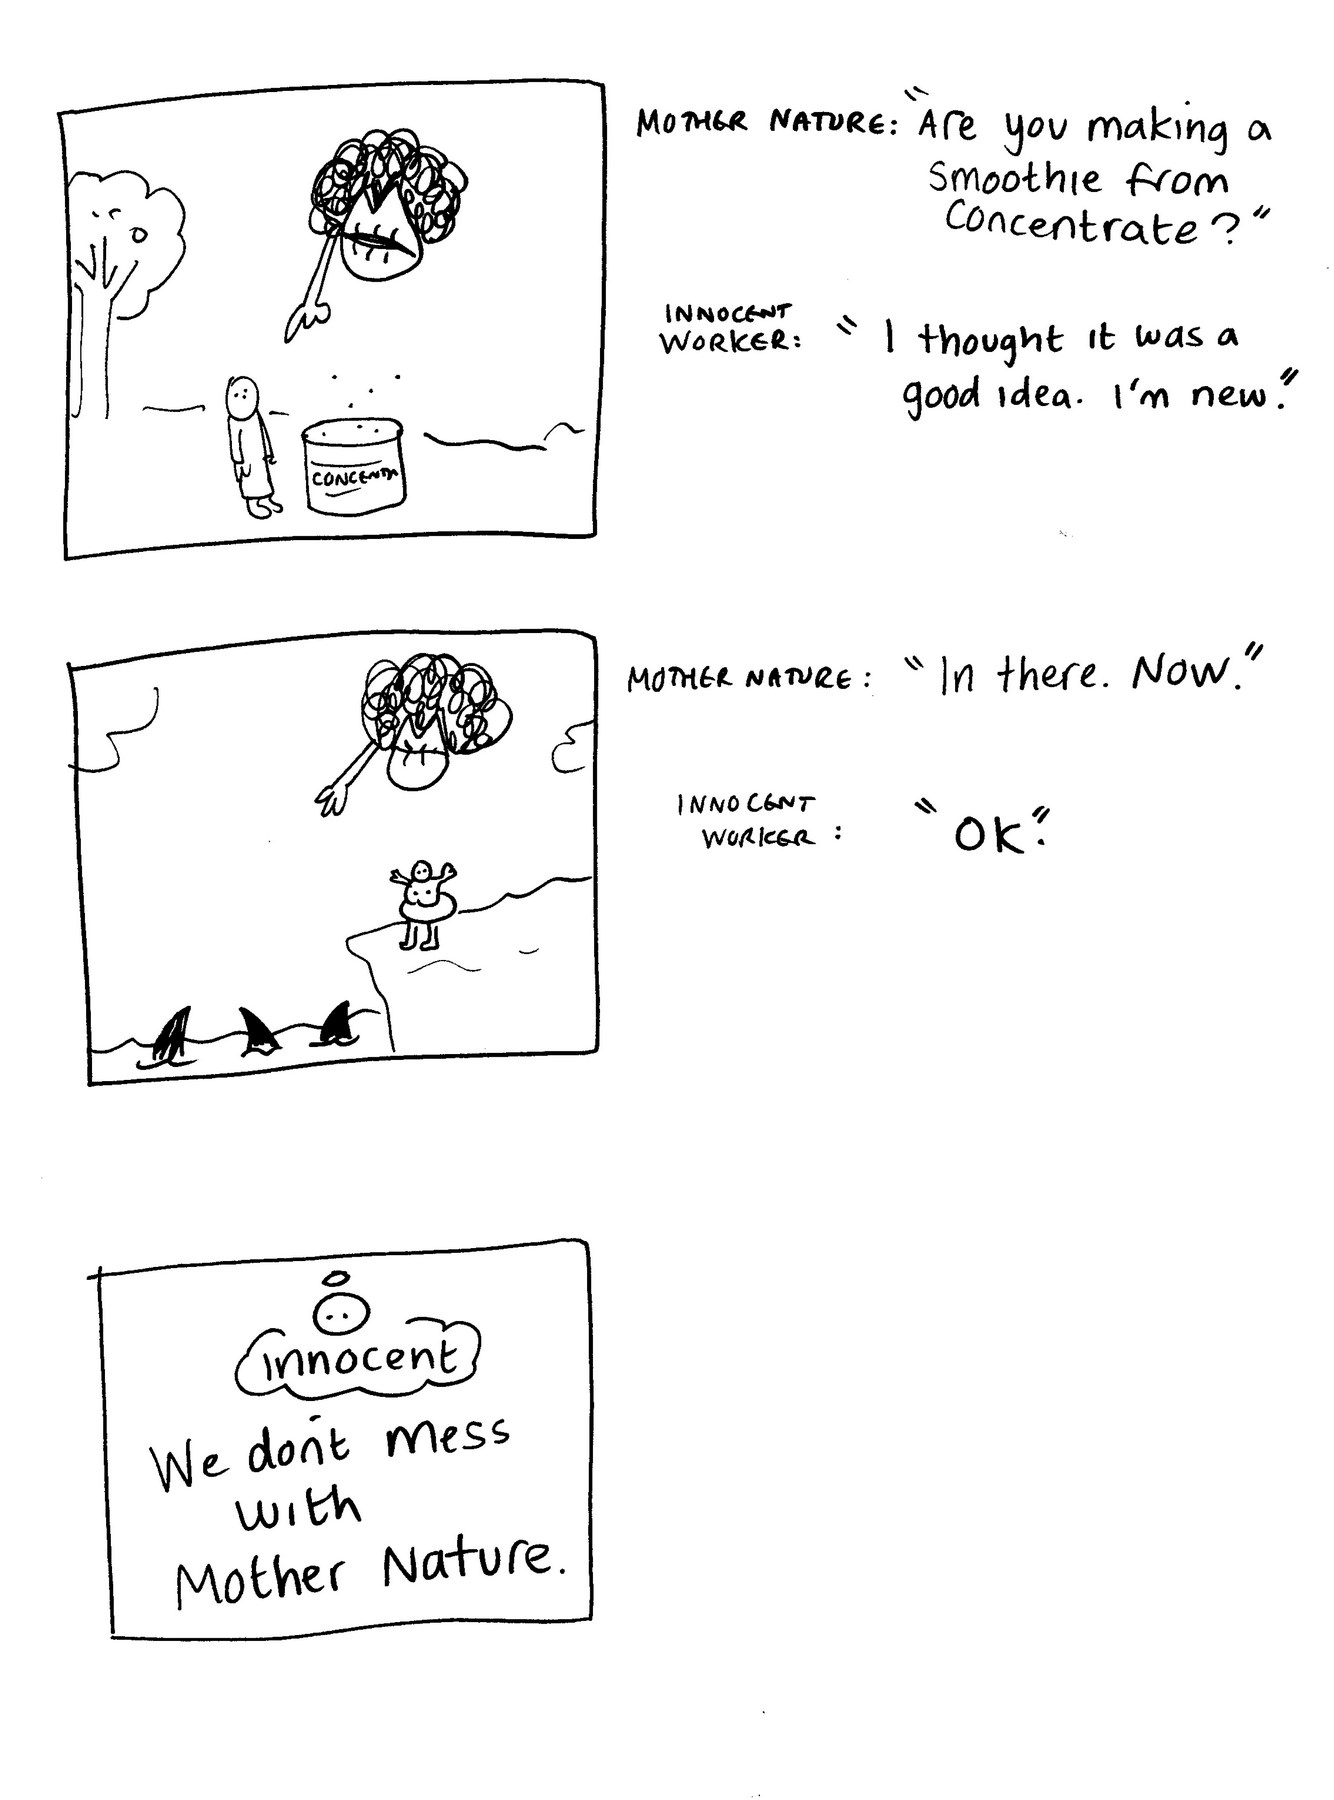 MOTHER NATURE: "Are you making a
smoothie from
concentrate?"
INNOCENT
WORKER: "I thought it was a
good idea. I'm new."
CONCENTR
MOTHER NATURE: "In there. Now."
INNOCENT
WORKER: "OK."
innocent
We don't mess
with
Mother Nature.